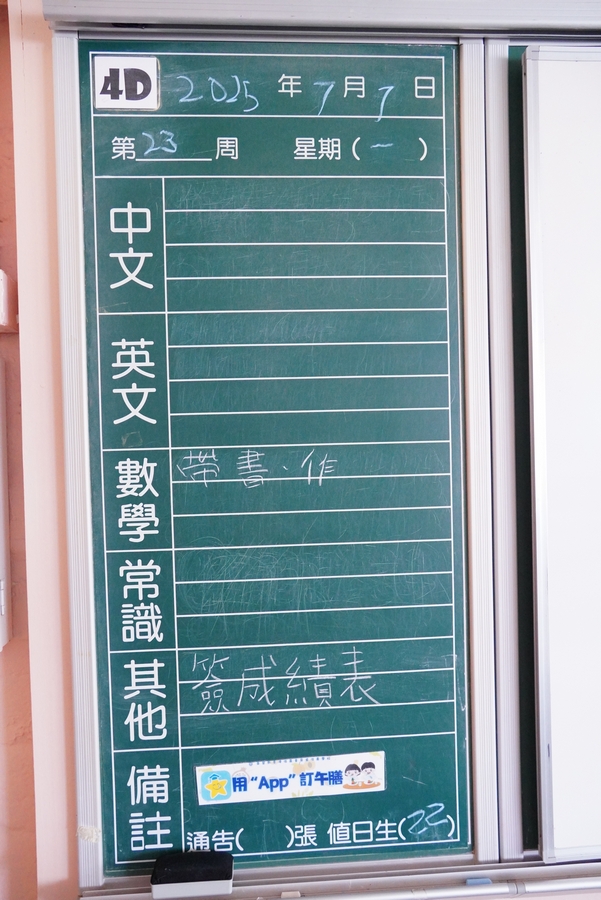 4D 2025 年 7 月 7 日
第 23 周 星期(一)
中文
英文
數學
帶書、作
常識
其他
簽成績表
備註
用“App”訂午膳
通告( )張 值日生(22)